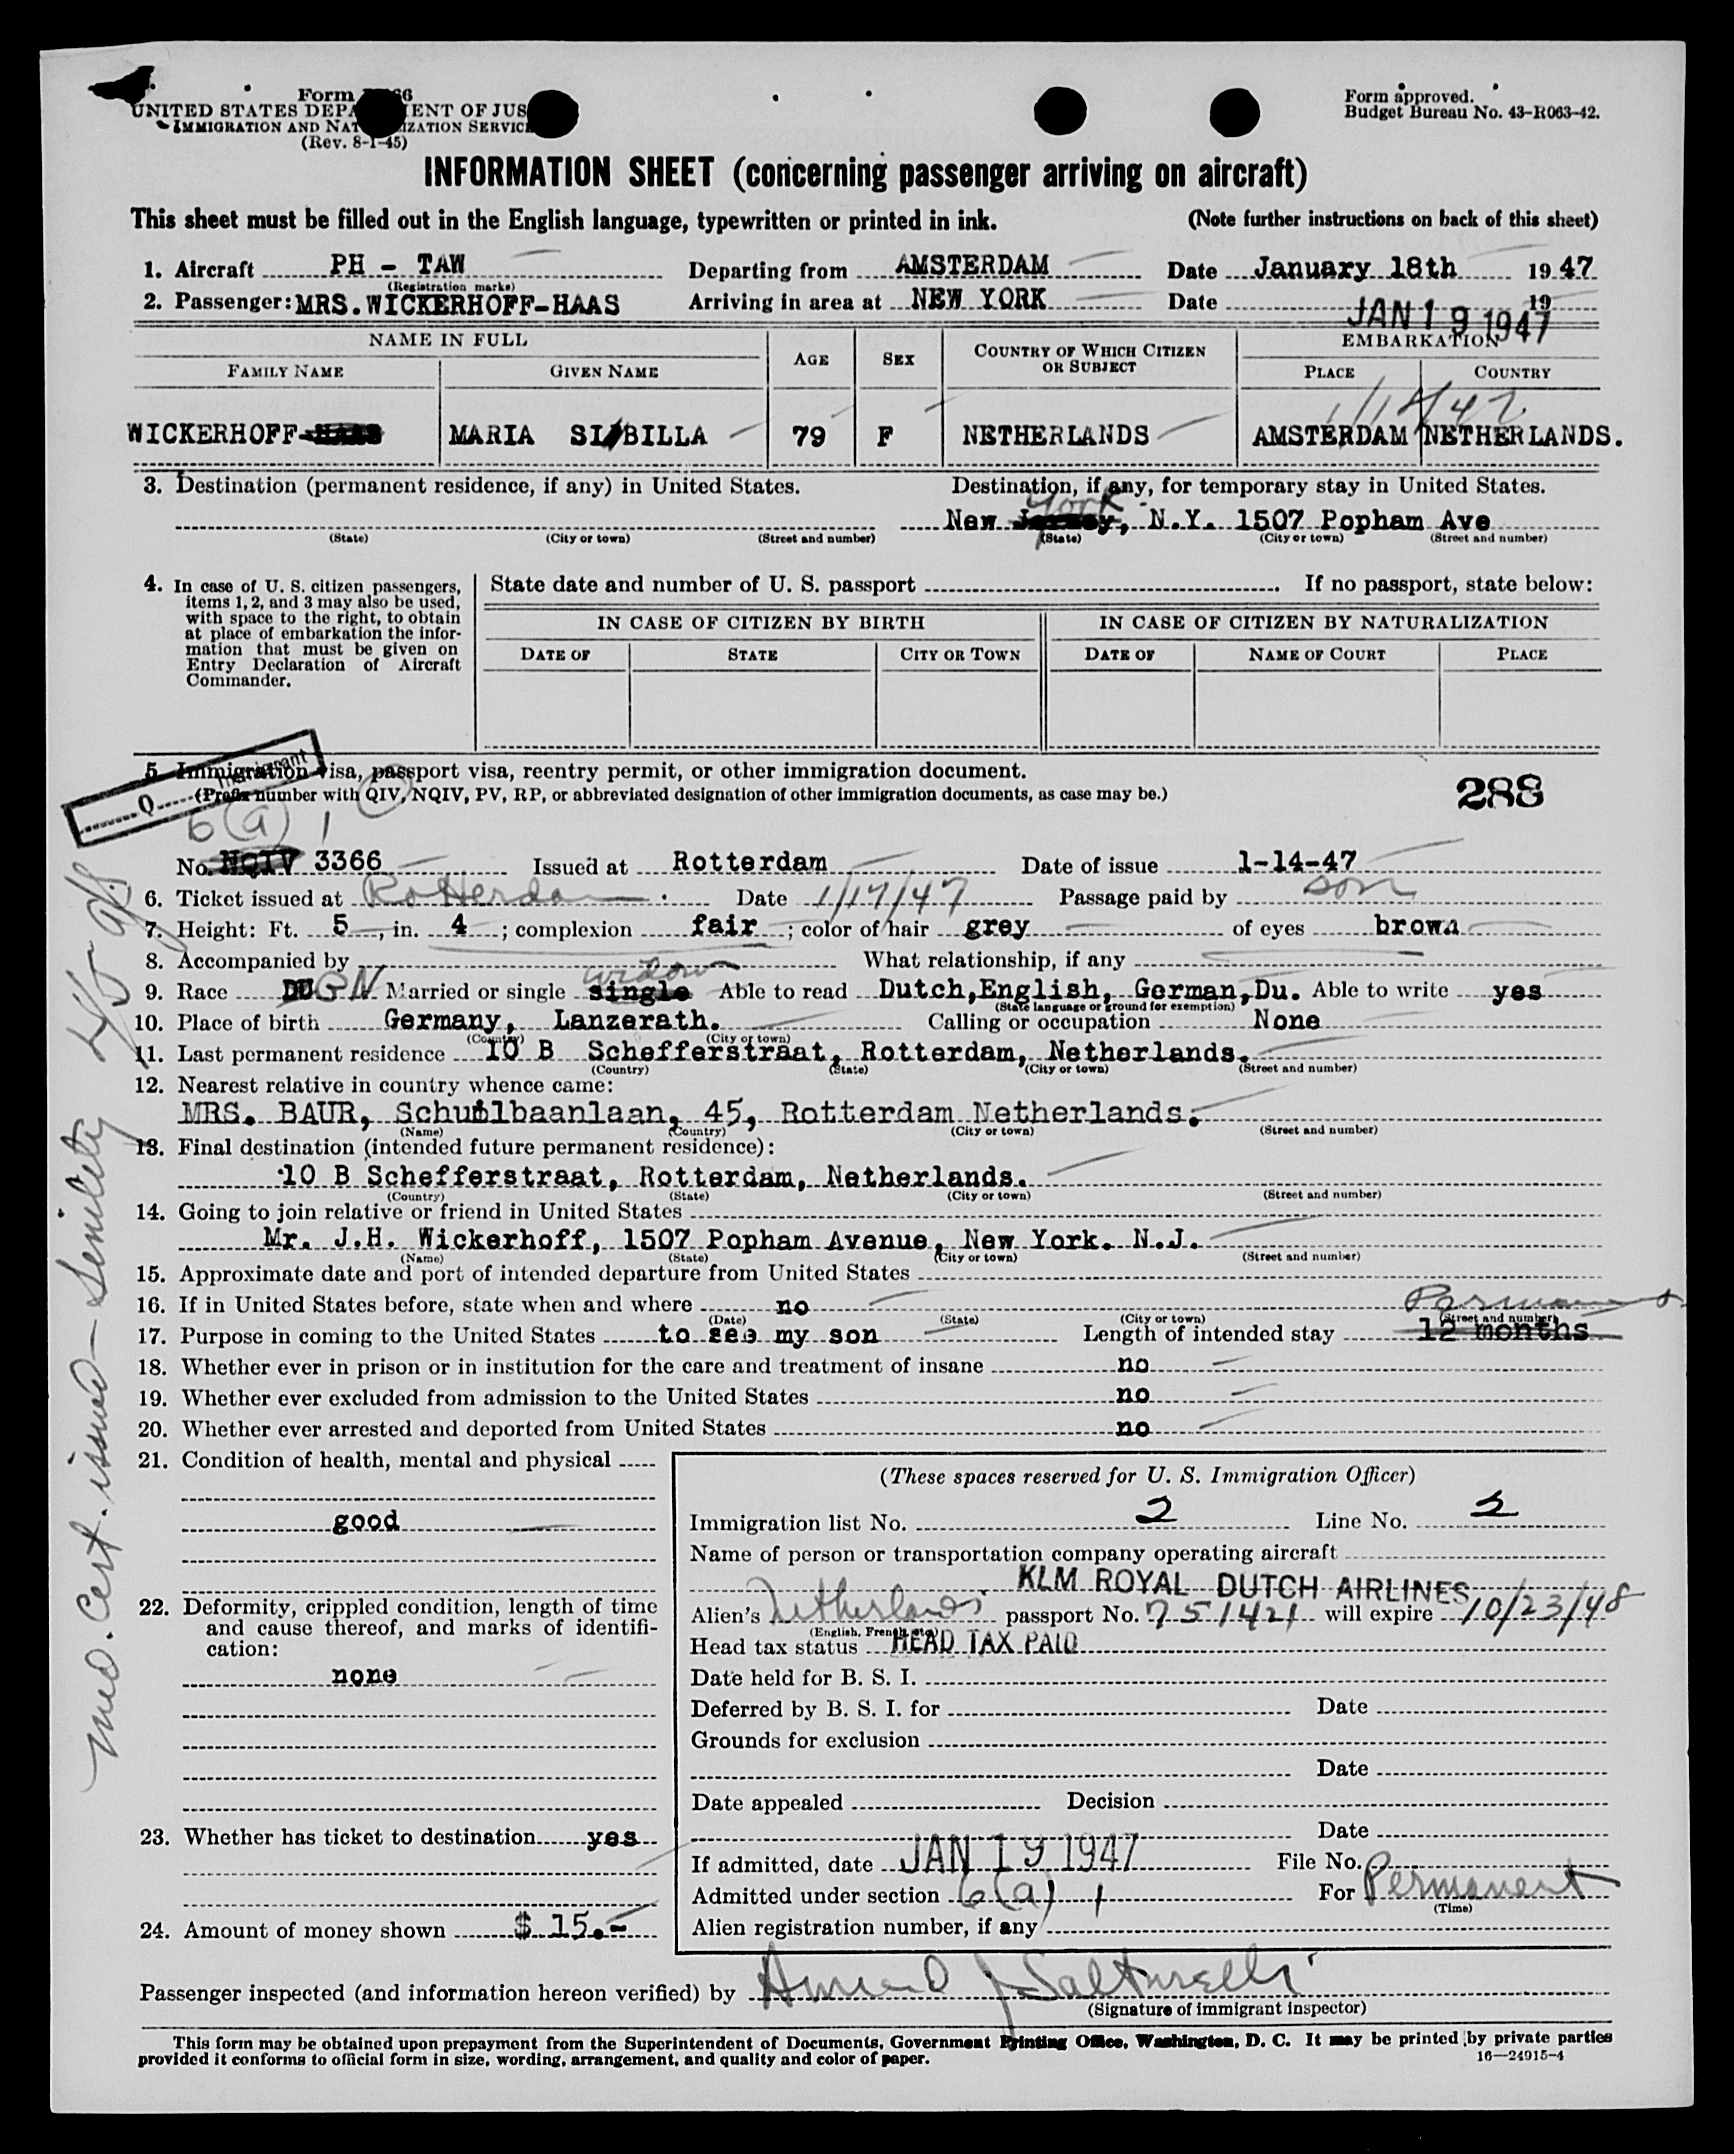 Form
UNITED STATES DEPA ENT OF JUS
IMMIGRATION AND NAT IZATION SERVICE
(Rev. 8-1-45)
Form approved.
Budget Bureau No. 43-R063-42.
INFORMATION SHEET (concerning passenger arriving on aircraft)
This sheet must be filled out in the English language, typewritten or printed in ink. (Note further instructions on back of this sheet)
1. Aircraft PH - TAW Departing from AMSTERDAM Date January 18th 1947
(Registration marks)
2. Passenger: MRS. WICKERHOFF-HAAS Arriving in area at NEW YORK Date JAN 19 1947 19
NAME IN FULL AGE SEX COUNTRY OF WHICH CITIZEN OR SUBJECT EMBARKATION
FAMILY NAME GIVEN NAME PLACE COUNTRY
1/18/47
WICKERHOFF-HAAS MARIA SI/BILLA 79 F NETHERLANDS AMSTERDAM NETHERLANDS.
3. Destination (permanent residence, if any) in United States. Destination, if any, for temporary stay in United States.
York
New Jersey, N.Y. 1507 Popham Ave
(State) (City or town) (Street and number) (State) (City or town) (Street and number)
4. In case of U. S. citizen passengers, items 1, 2, and 3 may also be used, with space to the right, to obtain at place of embarkation the information that must be given on Entry Declaration of Aircraft Commander.
State date and number of U. S. passport . If no passport, state below:
IN CASE OF CITIZEN BY BIRTH IN CASE OF CITIZEN BY NATURALIZATION
DATE OF STATE CITY OR TOWN DATE OF NAME OF COURT PLACE
5. Immigration visa, passport visa, reentry permit, or other immigration document.
(Prefix number with QIV, NQIV, PV, RP, or abbreviated designation of other immigration documents, as case may be.)
288
Q Immigrant
6(a) 1
No. NQIV 3366 Issued at Rotterdam Date of issue 1-14-47
6. Ticket issued at Rotterdam Date 1/17/47 Passage paid by son
7. Height: Ft. 5, in. 4; complexion fair; color of hair grey of eyes brown
8. Accompanied by What relationship, if any
widow
9. Race DU Married or single single Able to read Dutch,English, German,Du. Able to write yes
(State language or ground for exemption)
10. Place of birth Germany, Lanzerath. Calling or occupation None
(Country) (City or town)
11. Last permanent residence 10 B Schefferstraat, Rotterdam, Netherlands.
(Country) (State) (City or town) (Street and number)
12. Nearest relative in country whence came:
MRS. BAUR, Schuilbaanlaan, 45, Rotterdam Netherlands.
(Name) (Country) (City or town) (Street and number)
13. Final destination (intended future permanent residence):
10 B Schefferstraat, Rotterdam, Netherlands.
(Country) (State) (City or town) (Street and number)
14. Going to join relative or friend in United States
Mr. J.H. Wickerhoff, 1507 Popham Avenue, New York. N.J.
(Name) (State) (City or town) (Street and number)
15. Approximate date and port of intended departure from United States
16. If in United States before, state when and where no
(Date) (State) (City or town) (Street and number)
Permanent
17. Purpose in coming to the United States to see my son Length of intended stay 12 months
18. Whether ever in prison or in institution for the care and treatment of insane no
19. Whether ever excluded from admission to the United States no
20. Whether ever arrested and deported from United States no
21. Condition of health, mental and physical
good
22. Deformity, crippled condition, length of time and cause thereof, and marks of identification:
none
23. Whether has ticket to destination yes
24. Amount of money shown $ 15.-
(These spaces reserved for U. S. Immigration Officer)
Immigration list No. 2 Line No. 2
Name of person or transportation company operating aircraft
KLM ROYAL DUTCH AIRLINES
Alien's Netherlands passport No. 751421 will expire 10/23/48
(English, French, etc.)
Head tax status HEAD TAX PAID
Date held for B. S. I.
Deferred by B. S. I. for Date
Grounds for exclusion
Date
Date appealed Decision
Date
If admitted, date JAN 19 1947 File No.
Admitted under section 6(a) 1 For Permanent
(Time)
Alien registration number, if any
Passenger inspected (and information hereon verified) by
(Signature of immigrant inspector)
This form may be obtained upon prepayment from the Superintendent of Documents, Government Printing Office, Washington, D. C. It may be printed by private parties
provided it conforms to official form in size, wording, arrangement, and quality and color of paper.
16—24915-4
Med. Cert. issued - Senility